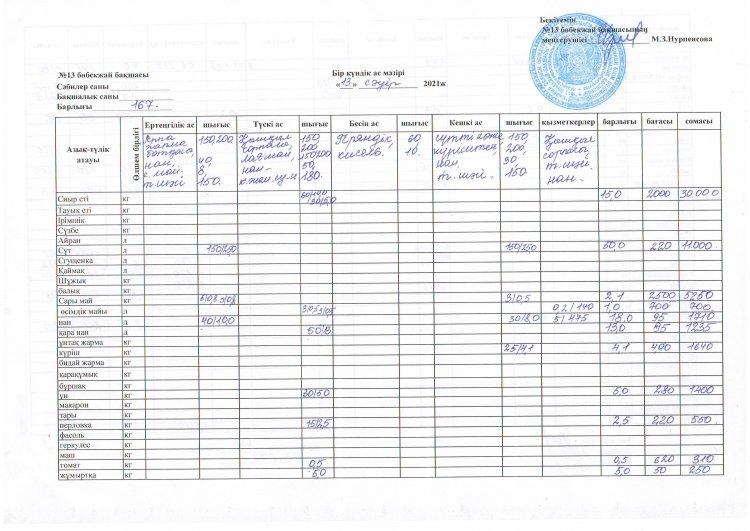 Бекітемін
№13 бөбекжай бақшасының
меңгерушісі М.З.Нурпенсова
№13 бөбекжай бақшасы
Сәбилер саны
Бақшалық саны
Барлығы 167.
Бір күндік ас мәзірі
«13» сәуір 2021ж
Азық-түлік атауы Өлшем бірлігі Ертеңгілік ас шығыс Түскі ас шығыс Бесін ас шығыс Кешкі ас шығыс қызметкерлер барлығы бағасы сомасы
Арпа 150,200 150, Пряндік, 60 150,
жарма 200 кисель. 200,
40, 150/200 нан, 30,
нан, 8, 50, т. шәй. 150.
с. май, 150. нан- 180. нан.
т. шәй
Сиыр еті кг 15,0 2000 30 000
Тауық еті кг
Ірімшік кг
Сүзбе кг
Айран л
Сүт л 150/25,0 150/25,0 50,0 220 11000.
Сгущенка л
Қаймақ л
Шұжық кг
балық кг
Сары май кг 3/0,5 2,1 2500 5250
өсімдік майы л 0,2/140 1,0 700 700
нан д 40/10,0 30/8,0 5/475 18,0 95 1710
қара нан д 50/8 13,0 95 1235
ұнтақ жарма кг
күріш кг 25/4,1 4,1 400 1640
бидай жарма кг
қарақұмық кг
бұршақ кг
ұн кг 30/50 5,0 280 1400
макарон кг
тары кг
перловка кг 15/2,5 2,5 220 550.
фасоль кг
геркулес кг
маш кг
томат кг 0,5 0,5 620 310
жұмыртка кг 5,0 5,0 50 250